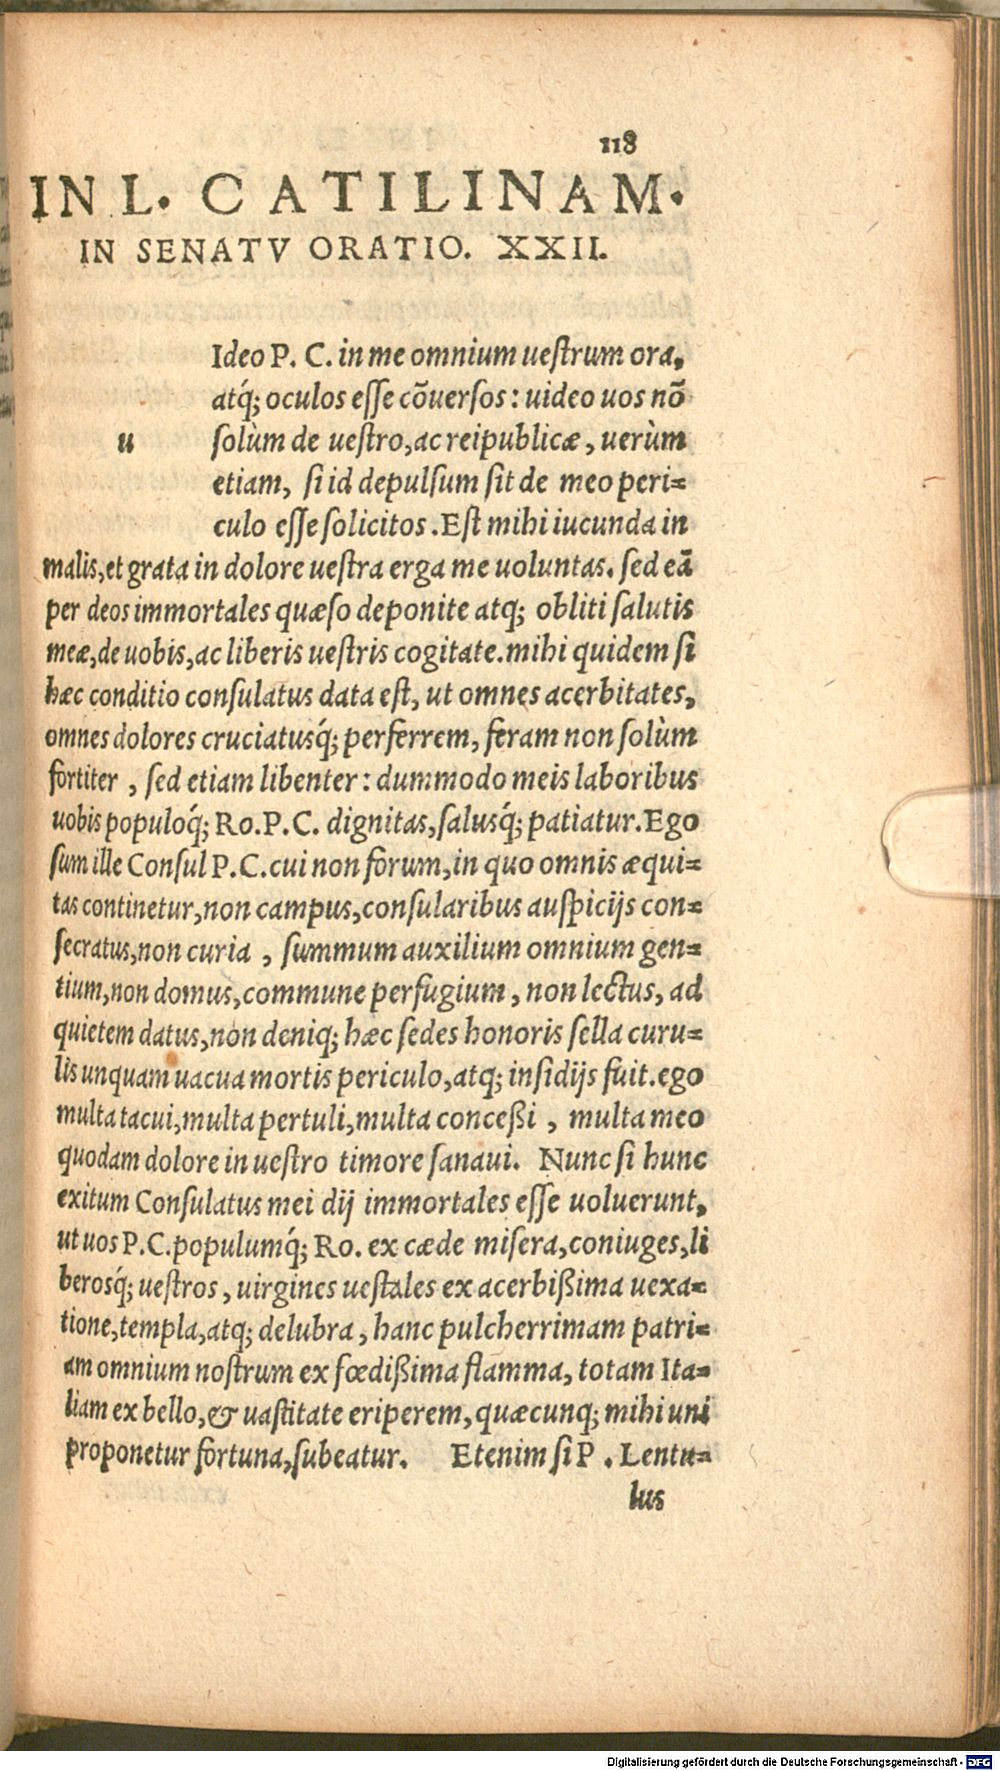 118
IN L. CATILINAM.
IN SENATV ORATIO. XXII.
u
Ideo P. C. in me omnium ueſtrum ora,
atq́; oculos eſſe cōuerſos: uideo uos nō
ſolùm de ueſtro, ac reipublicæ, uerùm
etiam, ſi id depulſum ſit de meo peri⸗
culo eſſe ſolicitos. Eſt mihi iucunda in
malis, et grata in dolore ueſtra erga me uoluntas. ſed eā
per deos immortales quæſo deponite atq; obliti ſalutis
meæ, de uobis, ac liberis ueſtris cogitate. mihi quidem ſi
hæc conditio conſulatus data eſt, ut omnes acerbitates,
omnes dolores cruciatusq́; perferrem, feram non ſolùm
fortiter, ſed etiam libenter: dummodo meis laboribus
uobis populoq́; Ro. P. C. dignitas, ſalusq́; patiatur. Ego
ſum ille Conſul P. C. cui non forum, in quo omnis æqui⸗
tas continetur, non campus, conſularibus auſpicijs con⸗
ſecratus, non curia, ſummum auxilium omnium gen⸗
tium, non domus, commune perfugium, non lectus, ad
quietem datus, non deniq; hæc ſedes honoris ſella curu⸗
lis unquam uacua mortis periculo, atq; inſidijs fuit. ego
multa tacui, multa pertuli, multa conceßi, multa meo
quodam dolore in ueſtro timore ſanaui. Nunc ſi hunc
exitum Conſulatus mei dij immortales eſſe uoluerunt,
ut uos P. C. populumq́; Ro. ex cæde miſera, coniuges, li
berosq́; ueſtros, uirgines ueſtales ex acerbißima uexa⸗
tione, templa, atq; delubra, hanc pulcherrimam patri⸗
am omnium noſtrum ex fœdißima flamma, totam Ita⸗
liam ex bello, & uaſtitate eriperem, quæcunq; mihi uni
proponetur fortuna, ſubeatur. Etenim ſi P. Lentu⸗
lus
Digitalisierung gefördert durch die Deutsche Forschungsgemeinschaft - DFG